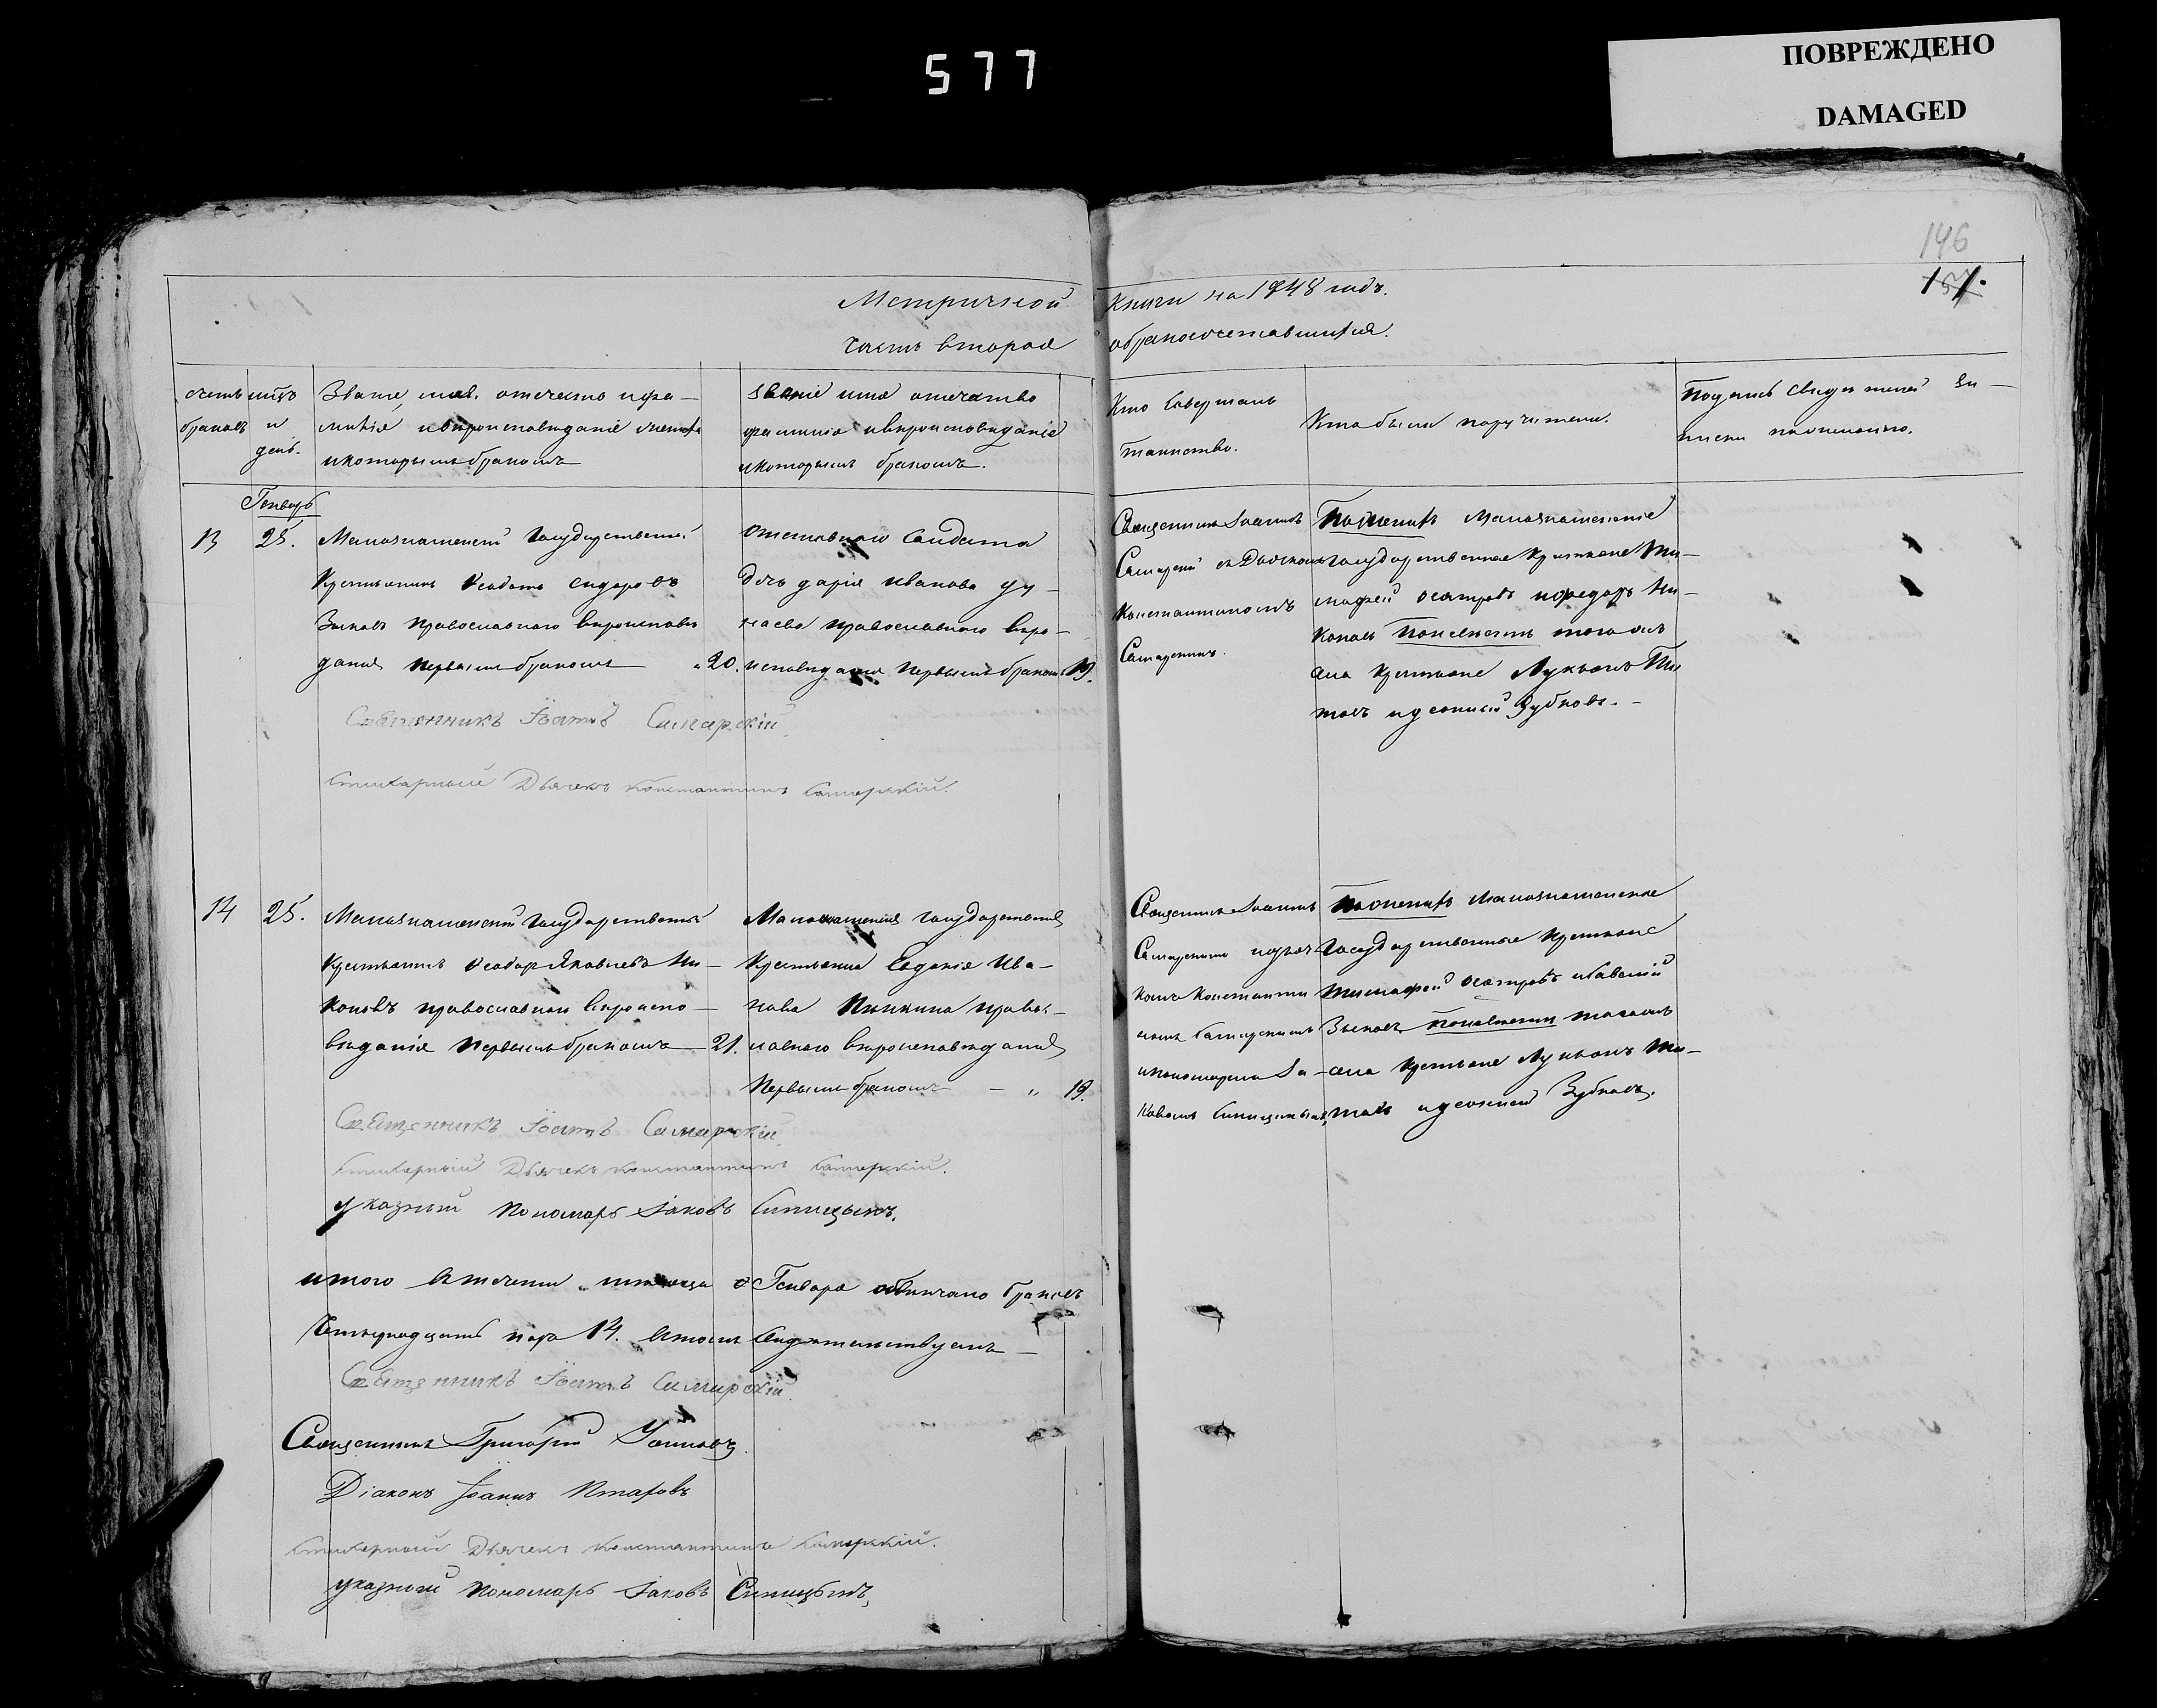 577
ПОВРЕЖДЕНО
DAMAGED
146
Метричной Книги на 1848 годъ.
Часть вторая о бракосочетавшихся.
счетъ браковъ
мцъ и день
Званіе, имя, отечество и фа-
милія и вероисповеданіе жениха
и которымъ бракомъ
званіе имя отечество
фамилія и вероисповеданіе
и которымъ бракомъ.
Кто совершалъ
таинство.
Кто были поручители.
Подпись свидетелей за-
писи по желанію.
Генварь
13 25.
Малознаменскій Государственный
Крестьянинъ Феодотъ Сидоровъ
Зыковъ православнаго вероиспове
данія первымъ бракомъ 20.
Отставнаго Солдата
дочь дарія иванова ду-
наева православнаго веро-
исповеданія первымъ бракомъ 19.
Священникъ Іоаннъ
Самарскій съ Дьячкомъ
Константиномъ
Самарскимъ.
По женихъ Малознаменскіе
государственные крестьяне Ти-
мофей и федоръ Ни-
коновъ по невесте того жъ
села крестьяне Лукьянъ Ти
товъ и деонисій Зубковъ.-
Священникъ Іоаннъ Самарскій.
Стихарный Дьячекъ Константинъ Самарскій.
14 25.
Малознаменскій Государственный
Крестьянинъ Феодоръ Яковлевъ Ни-
коновъ православнаго вероиспо-
веданія первымъ бракомъ 21.
Малознаменская государственная
Крестьянка Евдокія Ива-
нова православнаго вероисповеданія
Первымъ бракомъ - " 19.
Священникъ Іоаннъ
Самарскій
Константи
номъ Самарскимъ
и пономаремъ Іа-
ковомъ Синицынымъ,
По женихе Малознаменскіе
Государственные крестьяне
Тимофей
Зыковъ, по невесте тогожъ
села крестьяне Лукьянъ Ти-
товъ и деонисій Зубковъ.
Священникъ Іоаннъ Самарскій.
Стихарный Дьячекъ Константинъ Самарскій.
указный Пономарь Іаковъ Синицынъ.
итого въ теченіи месяца Генваря обвенчано браковъ
Четырнадцать паръ 14. въ томъ свидетельствуемъ
Священникъ Іоаннъ Самарскій.
Священникъ Григорій
Діаконъ Іоаннъ
Стихарный Дьячекъ Константинъ Самарскій.
указный Пономарь Іаковъ Синицынъ,